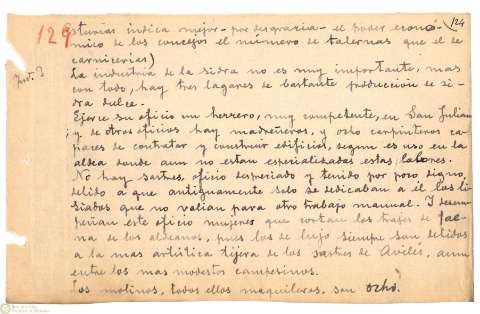 124
129
sturias indica mejor - por desgracia - el poder econó-
mico de los concejos el número de tabernas que el de
carnicerias)
La industria de la sidra no es muy importante, mas
con todo, hay tres lagares de bastante producción de si-
dra dulce.
Ejerce su oficio un herrero, muy competente, en San Julian
y de otros oficios hay madreñeros, y ocho carpinteros ca-
paces de contratar y construir edificios, segun es uso en la
aldea donde aun no estan especializadas estas labores.
No hay sastres, oficio despreciado y tenido por poco digno,
debido a que antiguamente solo se dedicaban a él los li-
siados que no valian para otro trabajo manual. Y desem-
peñan este oficio mujeres que cortan los trajes de fae-
na de los aldeanos, pues los de lujo siempre son debidos
a la mas artística tijera de los sastres de Avilés, aun
entre los mas modestos campesinos.
Los molinos, todos ellos maquileros, son ocho.